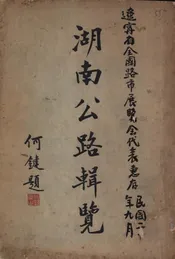 遼寧省全國路市展覽會代表惠存
民國二
年九月
湖南公路輯覽
何鍵題